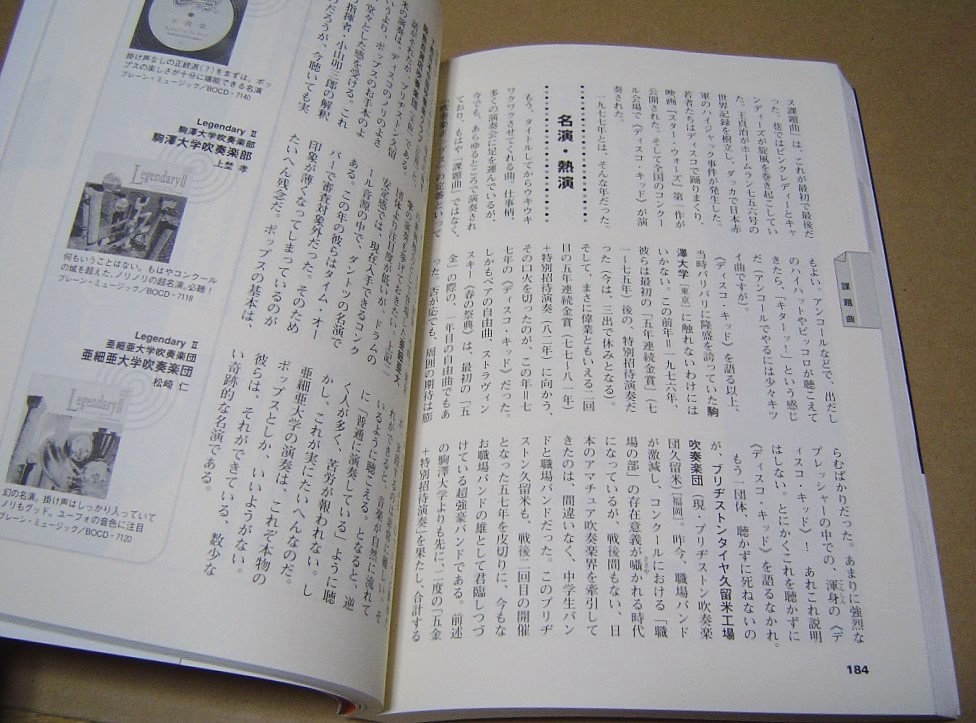 ス課題曲」は、これが最初で最後だ
った。巷ではピンクレディーとキャ
ンディーズが旋風を巻き起こしてい
た。王貞治がホームラン七五六号の
世界記録を樹立し、ダッカで日本赤
軍のハイジャック事件が発生した。
若者たちはディスコで踊りまくり、
映画『スター・ウォーズ』第一作が
公開された。そして全国のコンクー
ル会場で《ディスコ・キッド》が演
奏された。
一九七七年とは、そんな年だった。
名演・熱演
もう、タイトルしてからウキウキ
ワクワクさせてくれる曲。仕事柄、
多くの演奏会に足を運んでいるが、
今でも、あらゆるところで演奏され
ており、もはや「課題曲」ではなく、
もよい。アンコールなどで、出だし
のハイハットやピッコロが聴こえて
きたら、「キターッ!」という感じ
だ(アンコールでやるには少々キツ
イ曲ですが)。
《ディスコ・キッド》を語る以上、
当時バリバリに隆盛を誇っていた駒
澤大学(東京)に触れないわけには
いかない。この前年=一九七六年、
彼らは最初の「五年連続金賞」(七
一〜七五年)後の、特別招待演奏だ
った(今は、三出で休みとなる)。
そして、まさに偉業ともいえる二回
目の五年連続金賞(七七〜八一年)
+特別招待演奏(八二年)に向かう、
その口火を切ったのが、この年=七
七年の《ディスコ・キッド》だった。
しかもペアの自由曲、ストラヴィン
スキー《春の祭典》は、最初の「五
金」の際の、一年目の自由曲でもあ
った。否が応でも、周囲の期待は膨
らむばかりだった。あまりに強烈な
プレッシャーの中での、渾身の《デ
ィスコ・キッド》! あれこれ説明
はしない。とにかくこれを聴かずに
《ディスコ・キッド》を語るなかれ。
もう一団体、聴かずに死ねないの
が、ブリヂストンタイヤ久留米工場
吹奏楽団(現・ブリヂストン吹奏楽
団久留米)(福岡)。昨今、職場バンド
が激減し、コンクールにおける「職
場の部」の存在意義が囁かれる時代
になっているが、戦後間もない、日
本のアマチュア吹奏楽界を牽引して
きたのは、間違いなく、中学生バン
ドと職場バンドだった。このブリヂ
ストン久留米も、戦後二回目の開催
となった五七年を皮切りに、今もな
お職場バンドの雄として君臨しつづ
けている超強豪バンドである。前述
の駒澤大学よりも先に、二度の「五金
+特別招待演奏」を果たし、合計する
184
課題曲
うより、ポップスのお手本のよ
堂々とした感を受ける。これ
指揮者・小山卯三郎の解釈、
だろうが、今聴いても実
ール各賞の中で、ダントツの名演で
ある。この年の彼らはタイム・オー
バーで審査対象外だった。そのため
印象が薄くなってしまっているのが
たいへん残念だ。ポップスの基本は、
に「普通に演奏している」ように聴
く人が多く、苦労が報われない。し
かし、これが実にたいへんなのだ。
亜細亜大学の演奏は、これぞ本物の
ポップスとしか、いいようがない。
彼らは、それができている、数少な
い奇跡的な名演である。
掛け声なしの正統派(?)をまずは。ポッ
プスの楽しさが十分に堪能できる名演
ブレーン・ミュージック/BOCD-7140
Legendary II
駒澤大学吹奏楽部
駒澤大学吹奏楽部
上埜 孝
Legendary II
何もいうことはない。もはやコンクール
の域を超えた、ノリノリの超名演。必聴!
ブレーン・ミュージック/BOCD-7118
Legendary II
亜細亜大学吹奏楽団
亜細亜大学吹奏楽団
松崎 仁
Legendary II
幻の名演。掛け声はしっかり入っていて
ノリもグッド。ユーフォの音色に注目
ブレーン・ミュージック/BOCD-7120